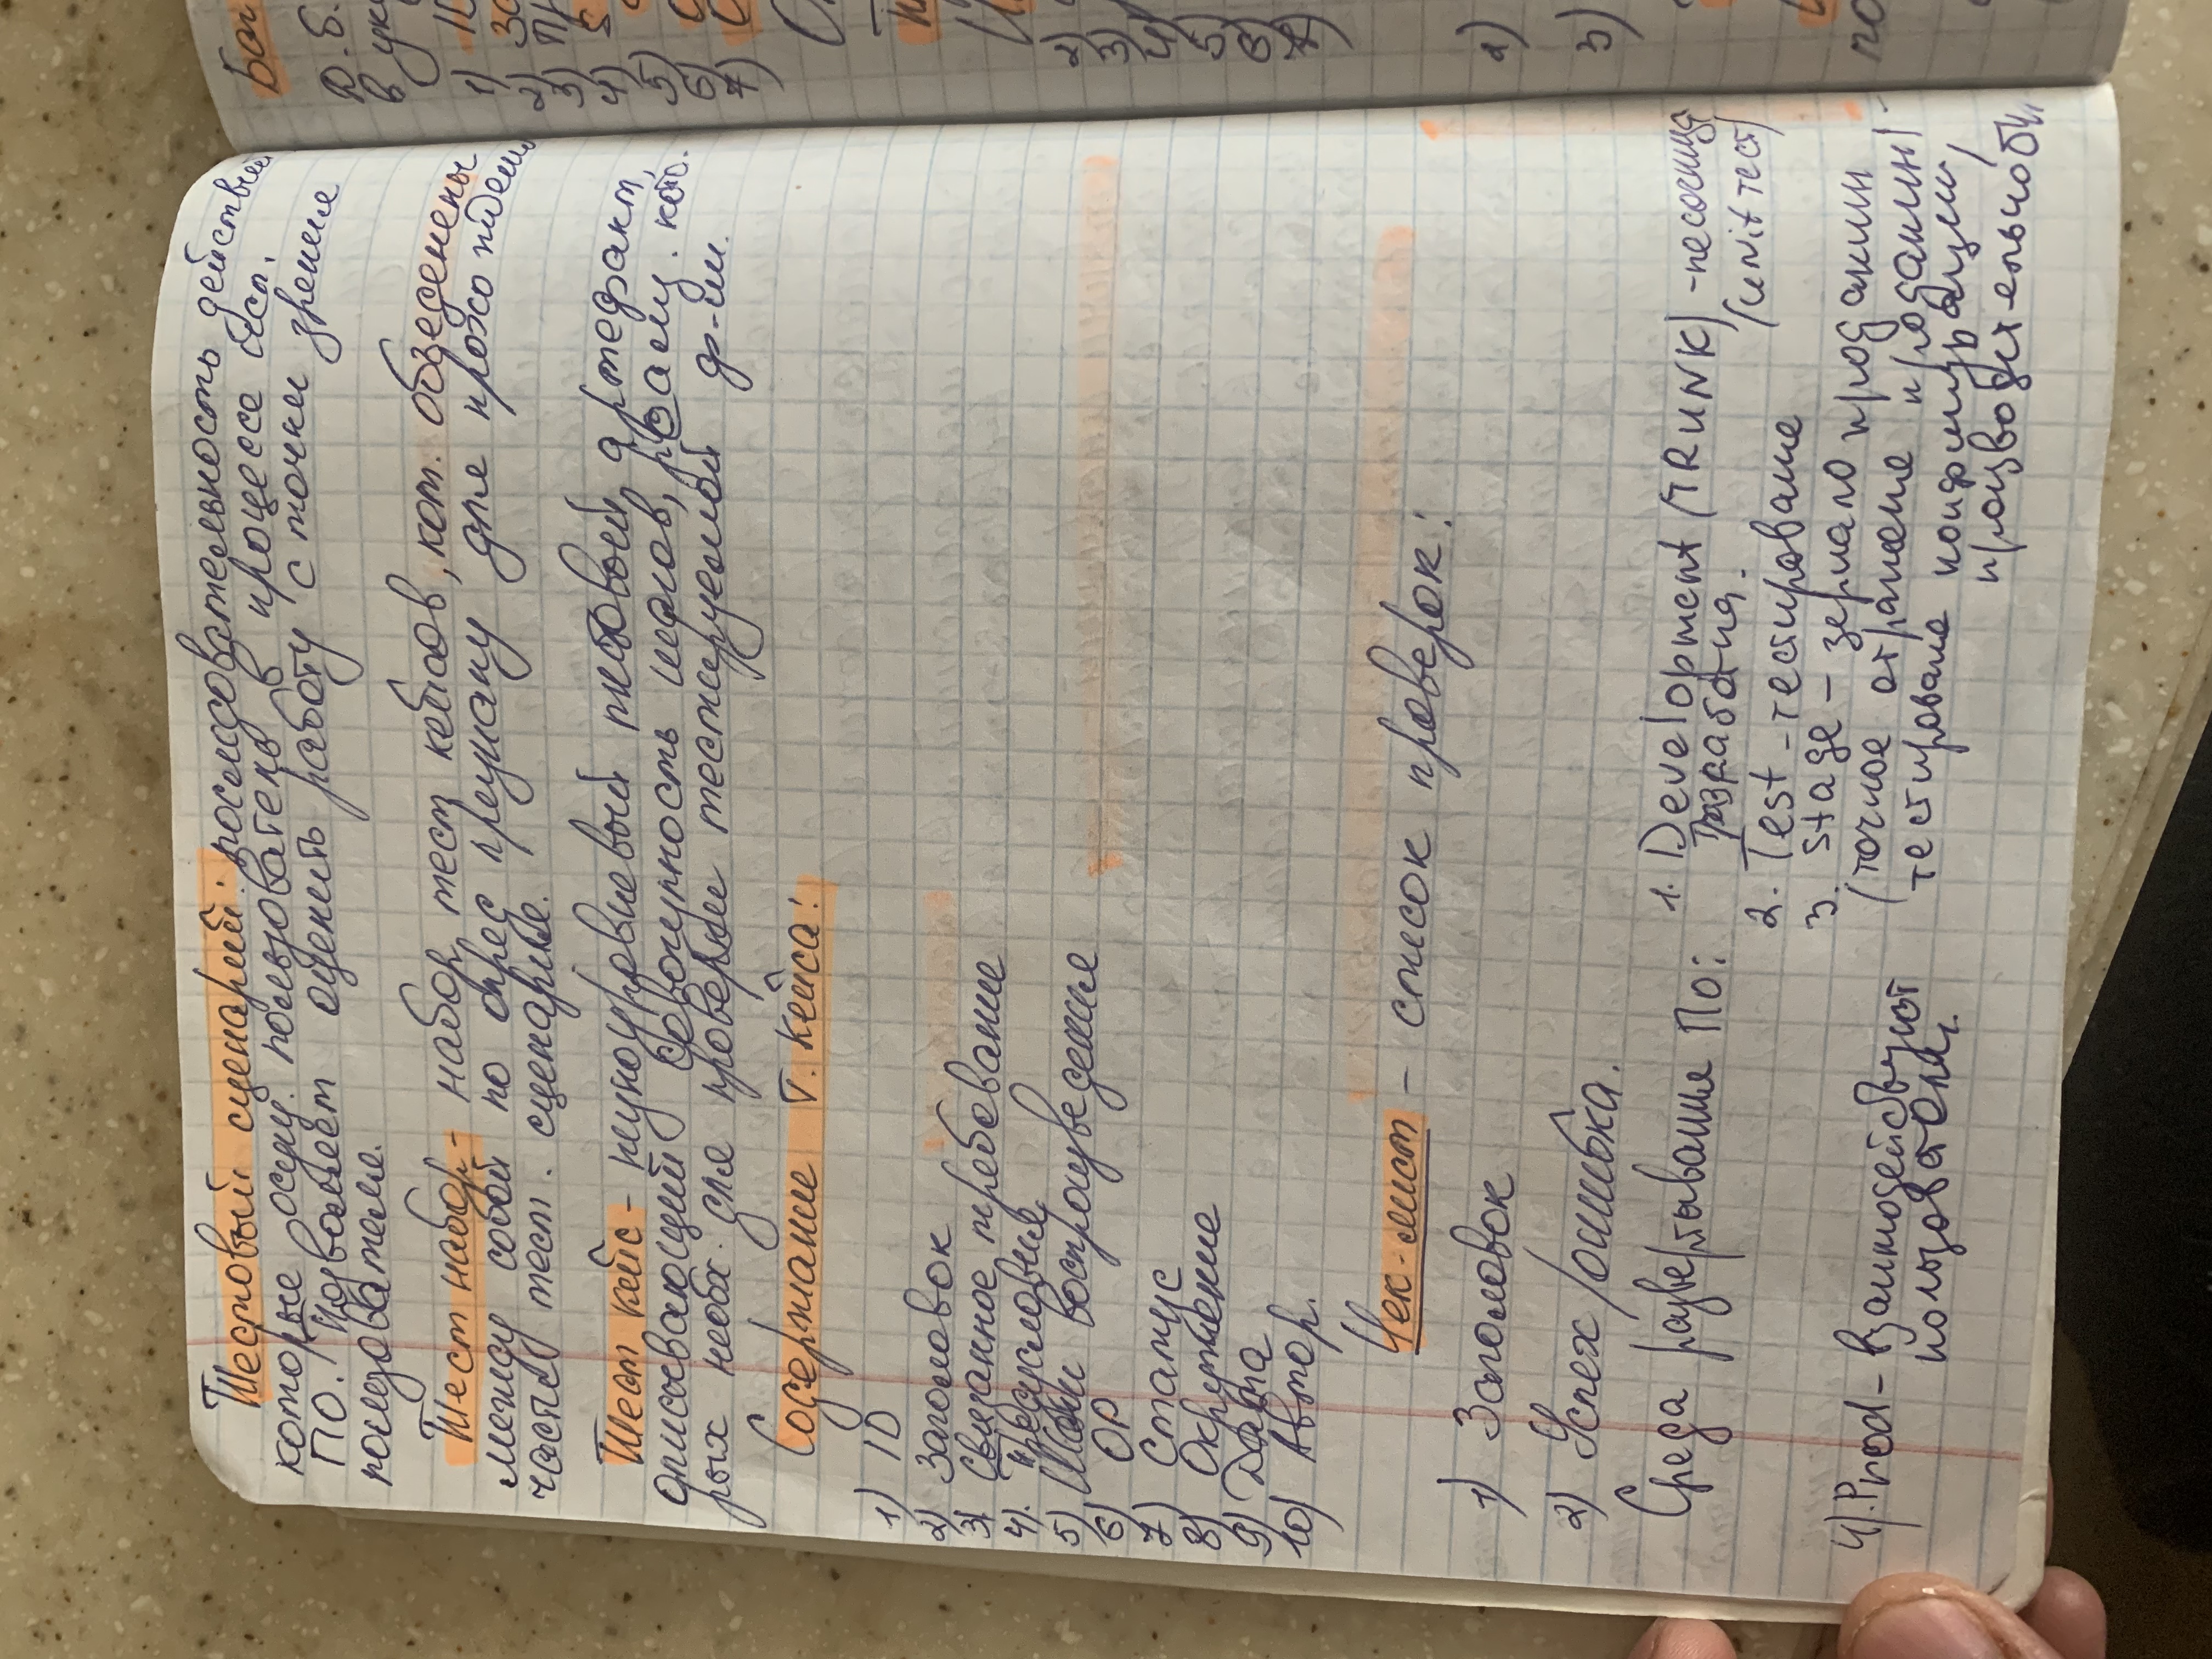 Тестовый сценарий: последовательность действий
которые осущ. пользователь в процессе исп.
ПО. Позволяет оценить работу с точки зрения
пользователя.
Тест набор - набор тест кейсов, кот. объеденены
между собой по опред признаку для прохождения
части тест. сценария.
Тест кейс - низкоуровневый тестовый артефакт,
описывающий совокупность шагов, реализ. кото-
рых необх. для проверки тестируемой ф-ии.
Содержание т. кейса:
1) ID
2) Заголовок
3) Связанное требование
4). Предусловия
5) Шаги воспроизведения
6) ОР
7) Статус
8) Окружение
9) Дата
10) Автор.
Чек-лист - список проверок:
1) Заголовок
2) Успех/ошибка.
Среда развертывания ПО:
1. Development (TRUNK) - песочница
Разработка.
(unit тест)
2. Test - тестирование
3. Stage - зеркало продакшн
(точное отражение продакшн)
тестирование конфигурации,
производительности.
4). Prod - взаимодействуют
пользователи.
Баг
Д. б.
1)
2)
3)
4)
5)
6)
7)
2)
3)
4)
5)
3)